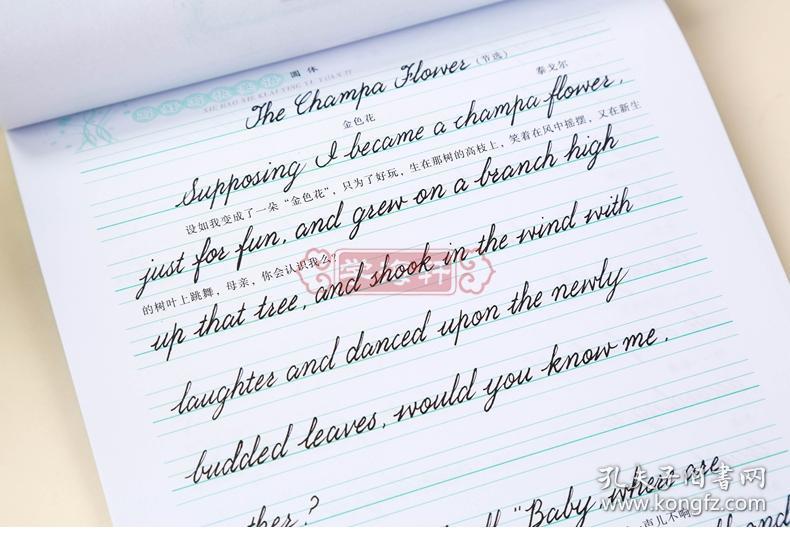 圆体
XIE HAO XIE KUAI YING YU YUAN TI
The Champa Flower (节选)
金色花
泰戈尔
Supposing I became a champa flower,
设如我变成了一朵“金色花”，只为了好玩，生在那树的高枝上，笑着在风中摇摆，又在新生
just for fun, and grew on a branch high
的树叶上跳舞，母亲，你会认识我么？
up that tree, and shook in the wind with
laughter and danced upon the newly
budded leaves, would you know me,
ther?
"Baby, where are
声儿不响
and
学海轩
孔夫子旧书网
www.kongfz.com